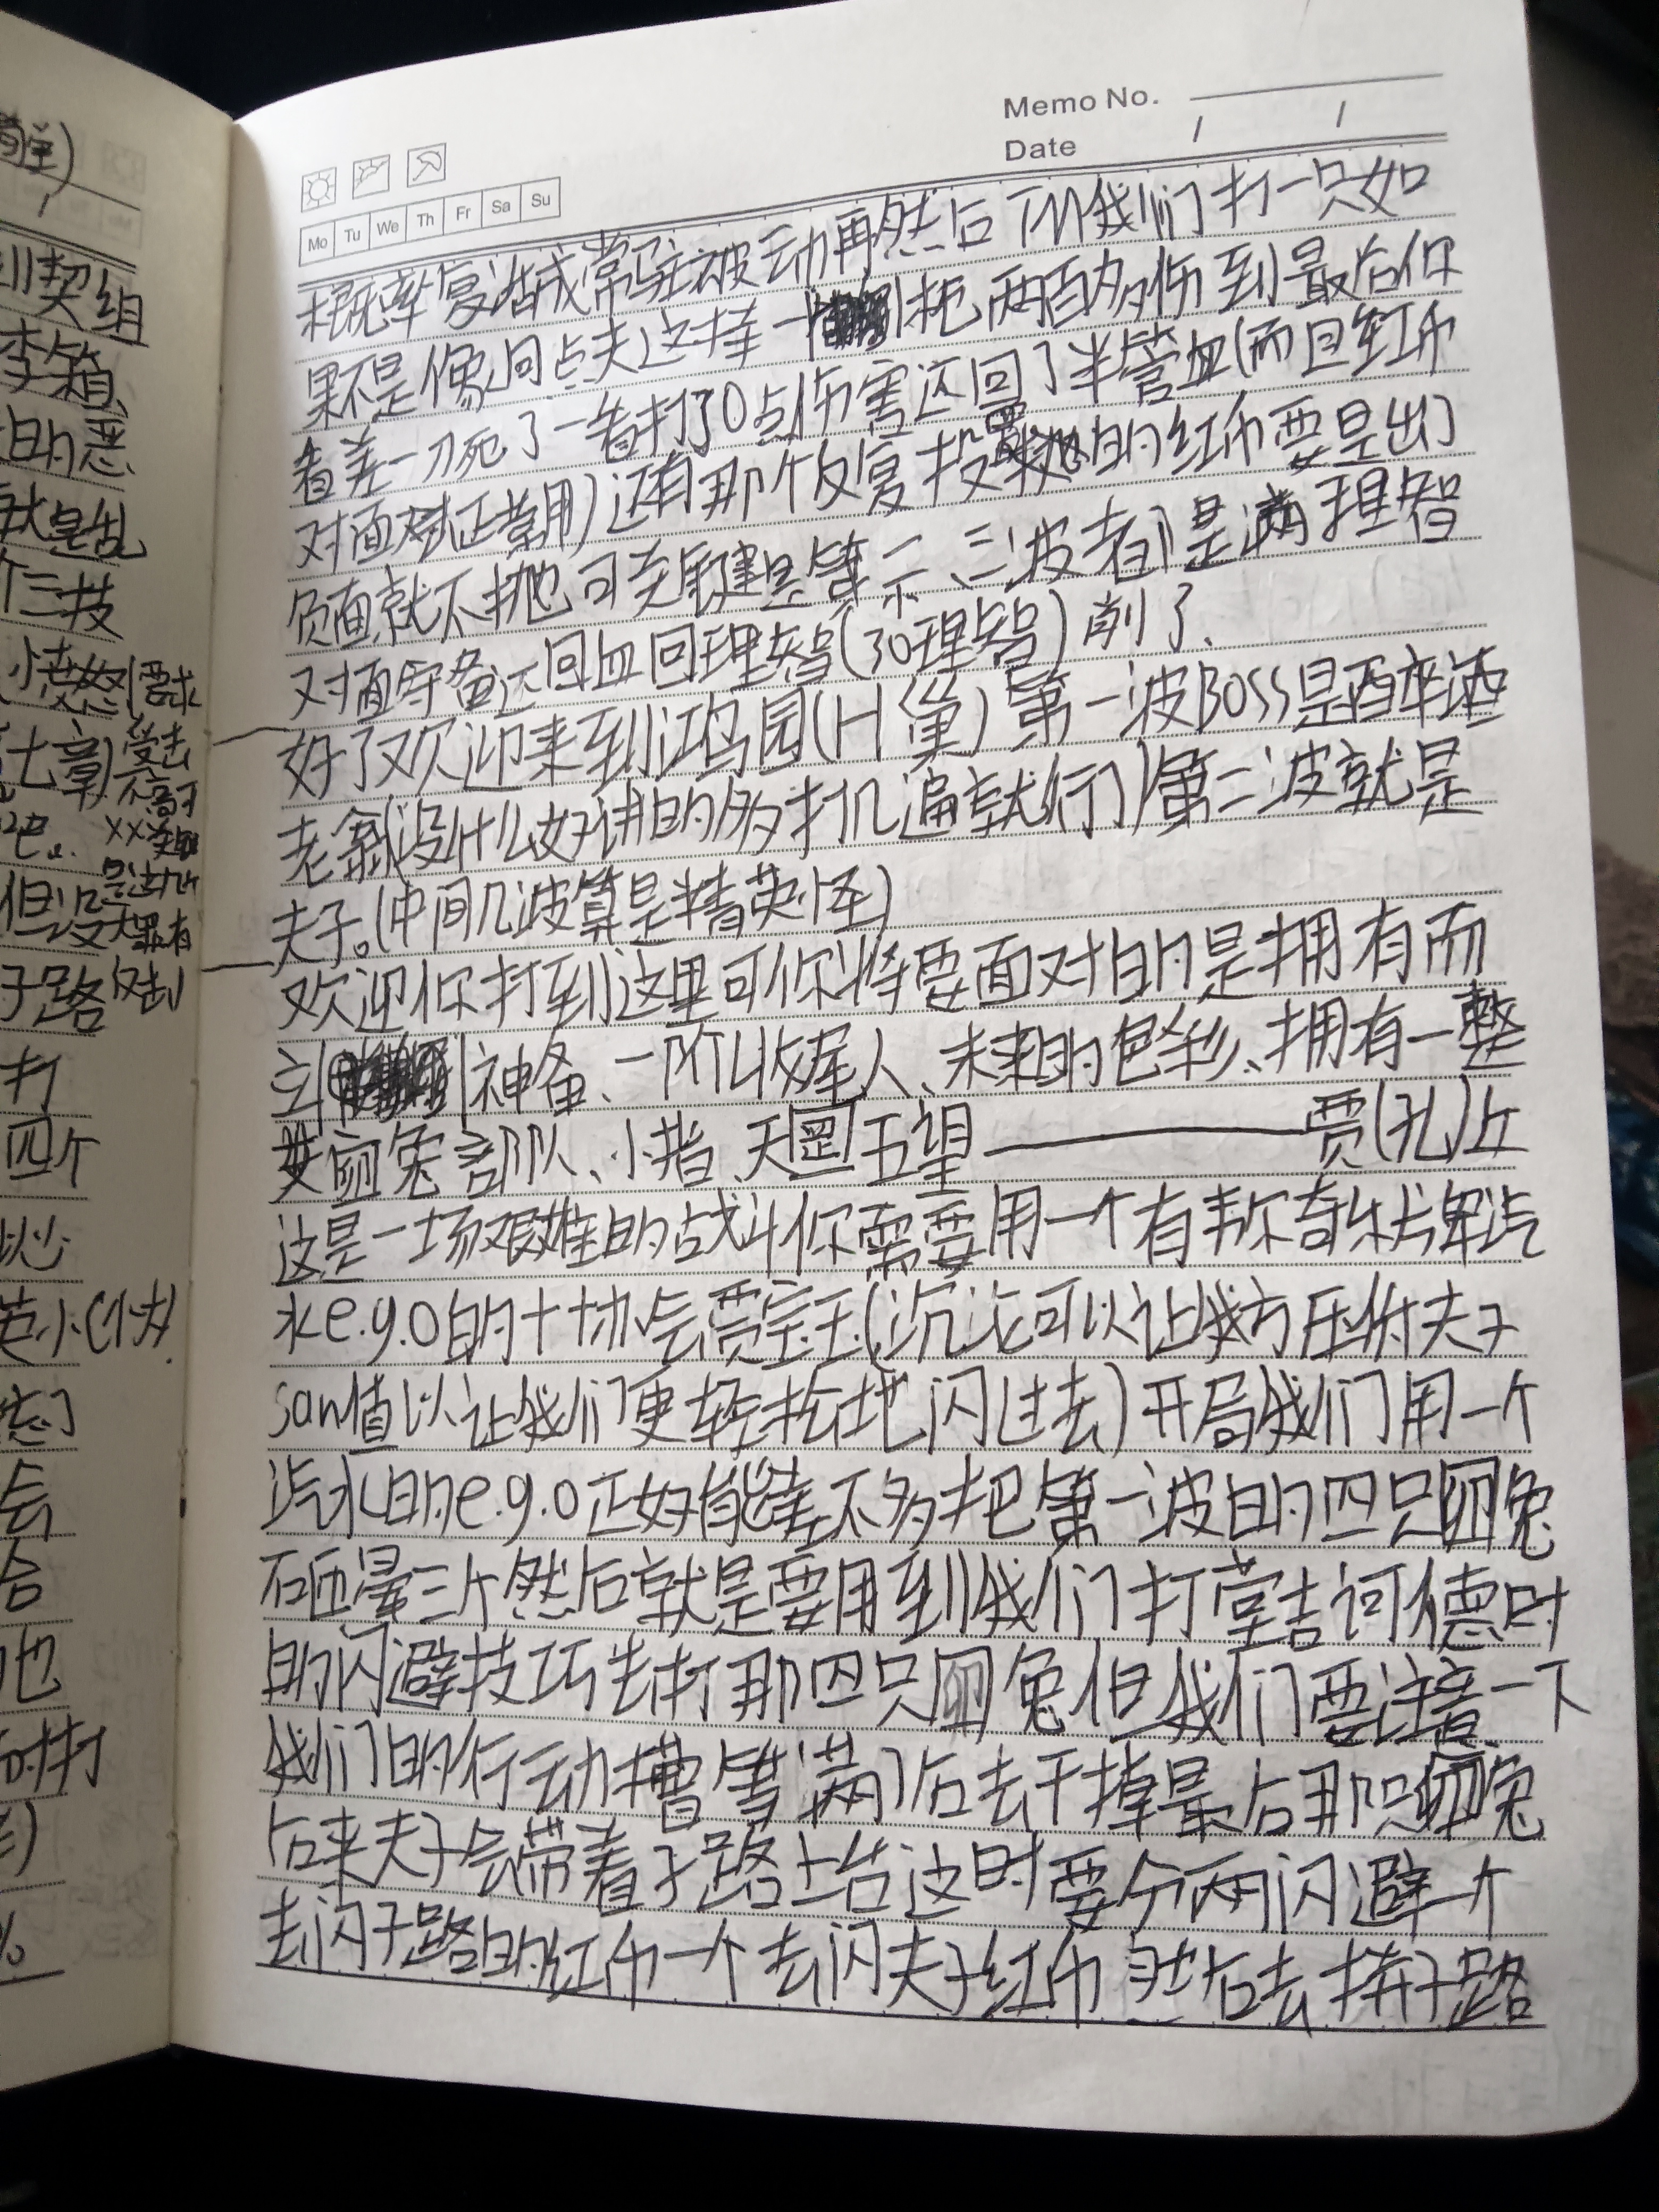 Memo No.
Date / /
Mo Tu We Th Fr Sa Su
概率复活成常驻被动再然后 我们打一只如
果不是像 点夫这样一 把两百多伤到最后仅
着差一刀死了一着打了0点伤害还回了半管血(而且红币
对面对正常用)还有那个反复投 的红币要是出了
负面就不抛可关键是第二、三波者 是满理智
对面守备还回血回理智(30理智)削了、
好了欢迎来到鸿园(H巢)第一波BOSS是酉 酒
老翁(没什么好讲的多打几遍就行了)第二波就是
夫子。(中间几波算是精英怪)
欢迎你打到这里可你将要面对的是拥有而
立 神备、一阶收尾人、未来的色彩、拥有一整
支 兔部队、小指、天 五望——贾(孔)丘
这是一场艰难的战斗你需要用一个有韦尔奇乐牌汽
水e.g.o的十协会贾宝玉(沉沦可以让我方压制夫子
san值以让我们更轻松地闪过去)开局我们用一个
汽水的e.g.o正好能差不多把第一波的四只 兔
砸晕三个然后就是要用到我们打堂吉诃德时
的闪避技巧去打那四只 兔但我们要注意一下
我们的行动槽等满了后去干掉最后那只 兔
后来夫子会带着子路上台这时要分两闪避一个
去闪子路的红币一个去闪夫子红币 然后去拼子路
川契组
李箱
的恶
就是乱
个三技
愤怒
七章
受击
不高于
但没
大罪有
子路
打
四个
会
合
也
时打